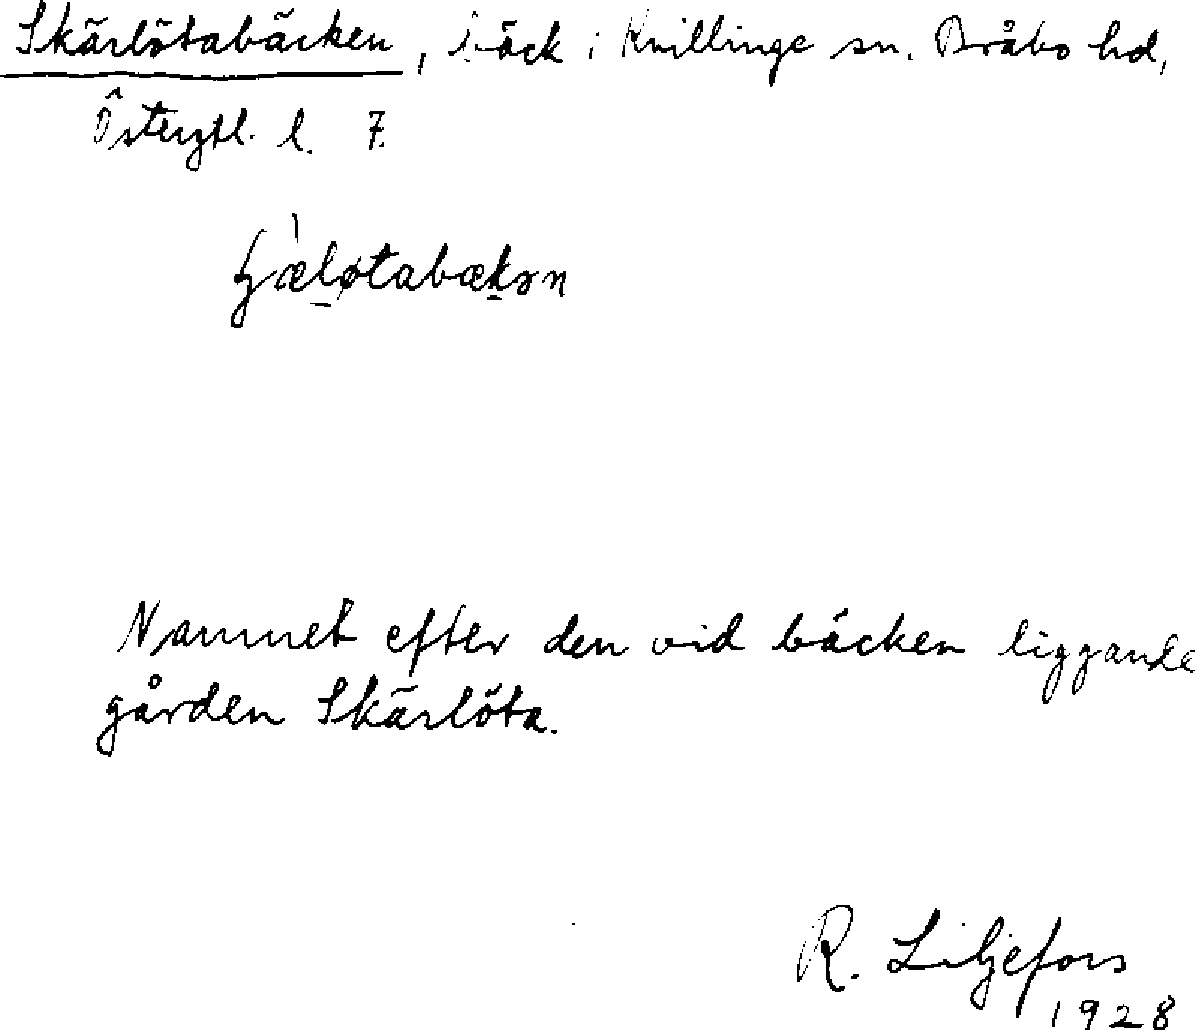 Skärlötabäcken, bäck i Kvillinge sn. Bråbo hd,
Östergtl. l. 7.
ɧæ̀løtabækən
Namnet efter den vid bäcken liggande
gården Skärlöta.
R. Liljefors
1928